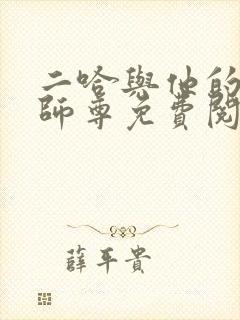 二哈與他的
師尊免費閱
薛平貴